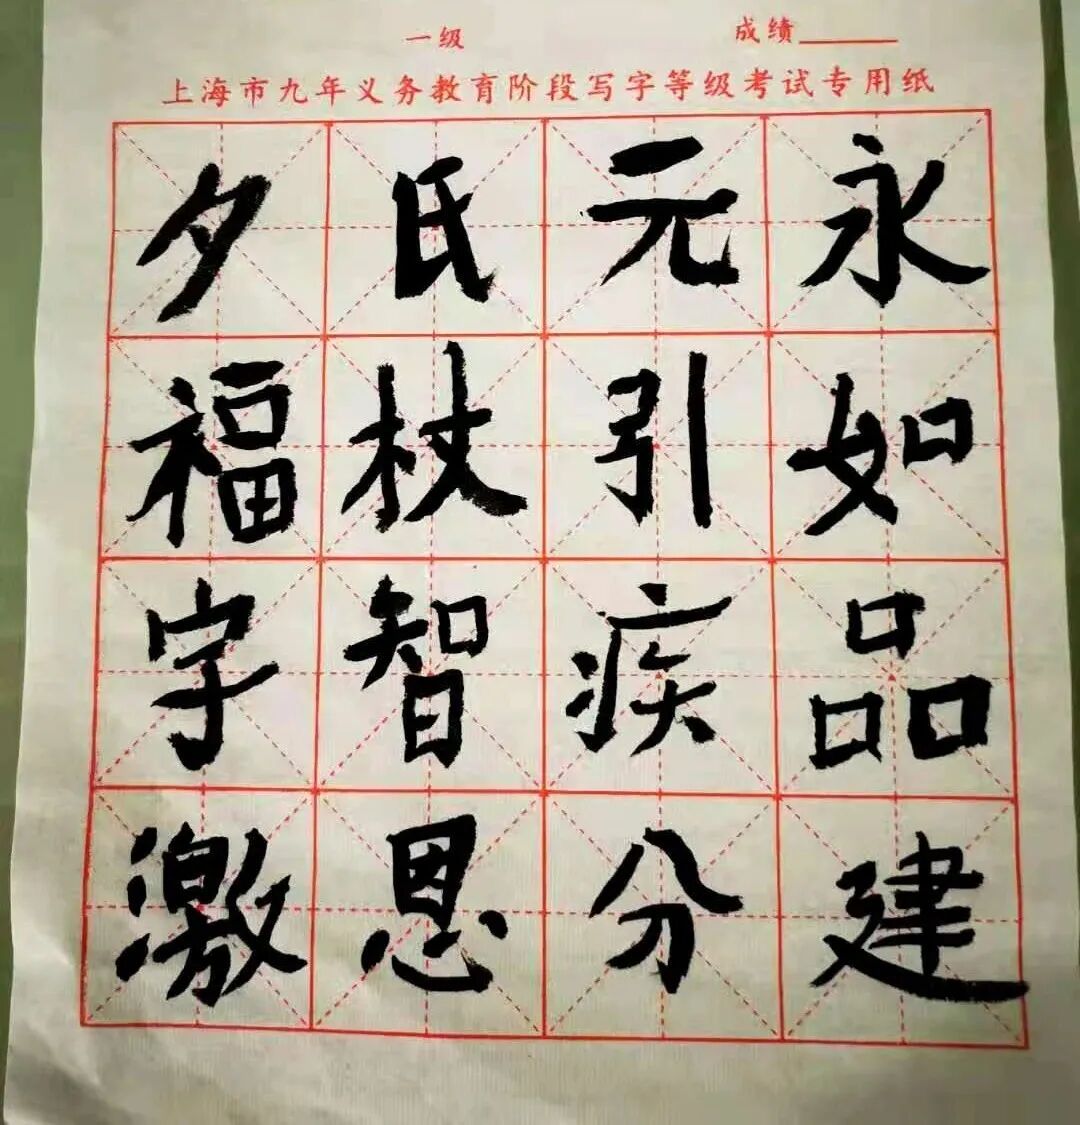 一级 成绩
上海市九年义务教育阶段写字等级考试专用纸
永如品建
元引疾分
氏杖智恩
夕福字激